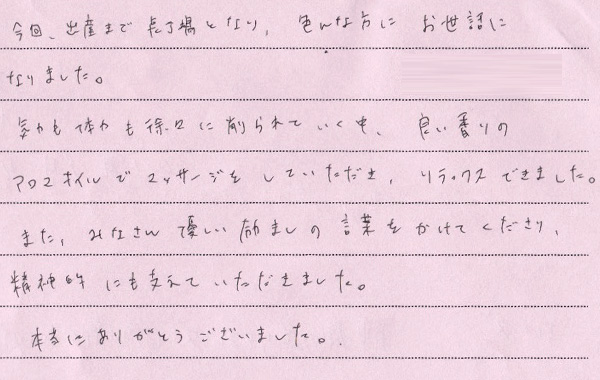 今回、出産まで長丁場となり、色んな方にお世話に
なりました。
気力も体力も徐々に削られていく中、良い香りの
アロマオイルでマッサージをしていただき、リラックスできました。
また、みなさん優しい励ましの言葉をかけてくださり、
精神的にも支えていただきました。
本当にありがとうございました。